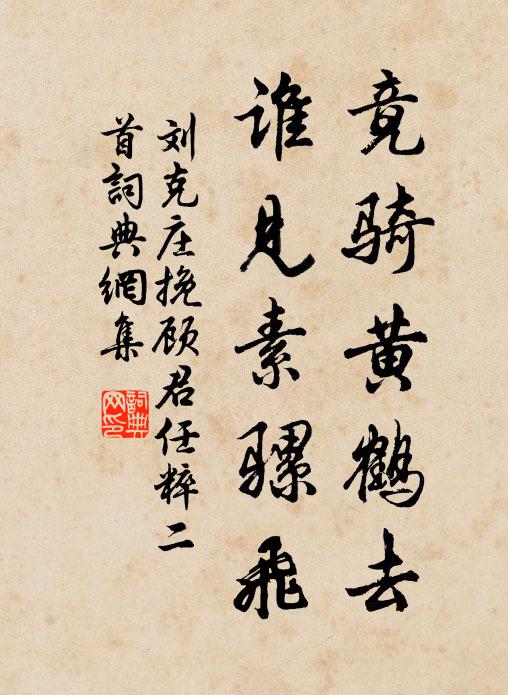 竟骑黄鹤去
谁见素骡飞
刘克庄挽顾君任粹二
首詞典網集
詞典
网印